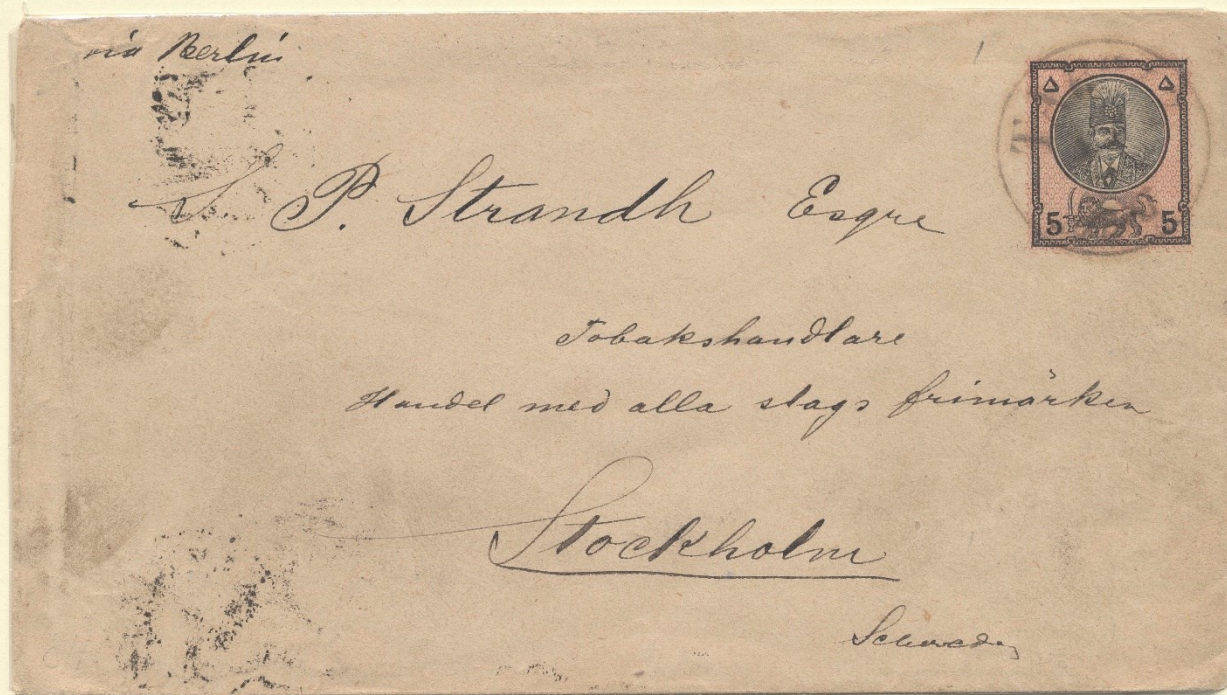 via Berlin
S. P. Strandh Esqre
۵ ۵
5 5
Tobakshandlare
Handel med alla slags frimärken
Stockholm
Schweden